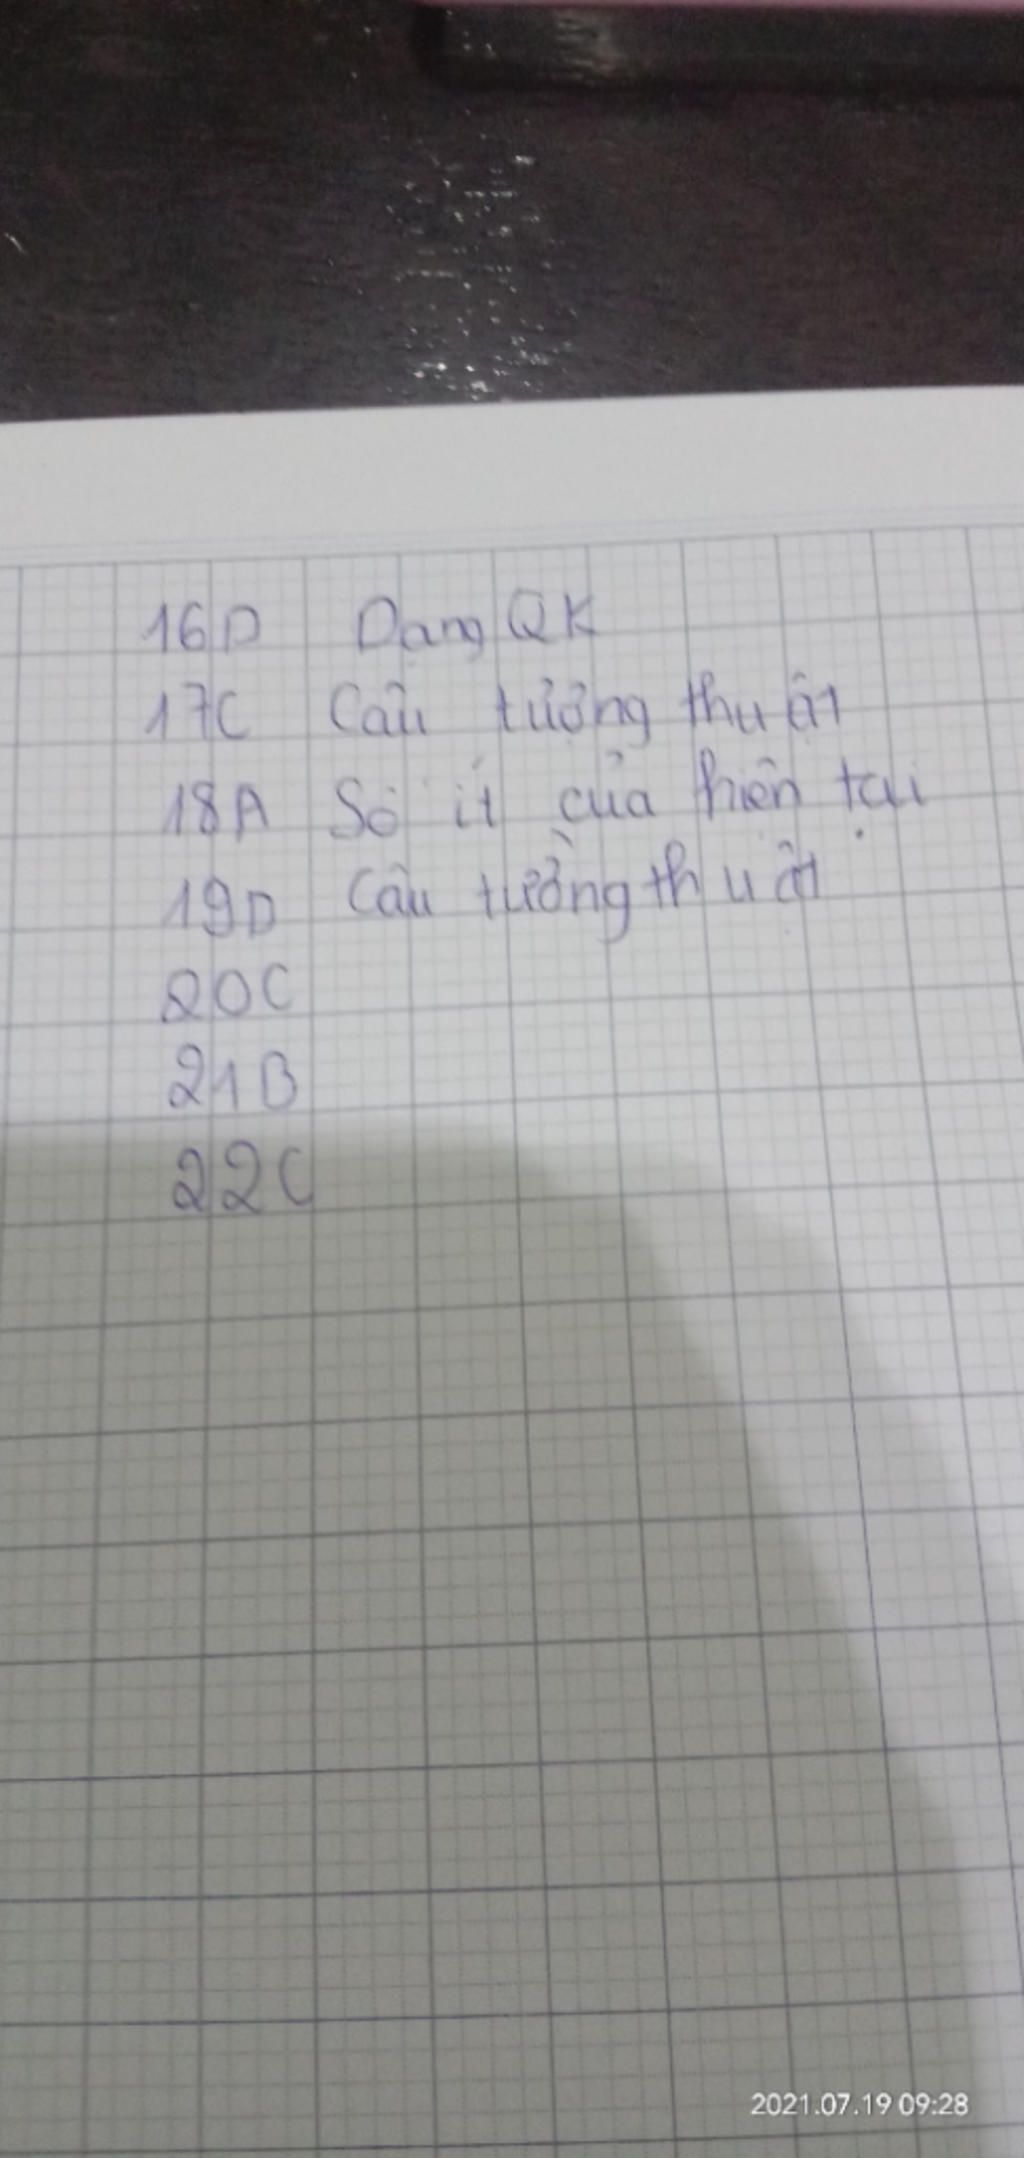 16D Dạng QK
17C Câu tường thuật
18A Số ít của hiện tại
19D Câu tường thuật
20C
21B
22C
2021.07.19 09:28